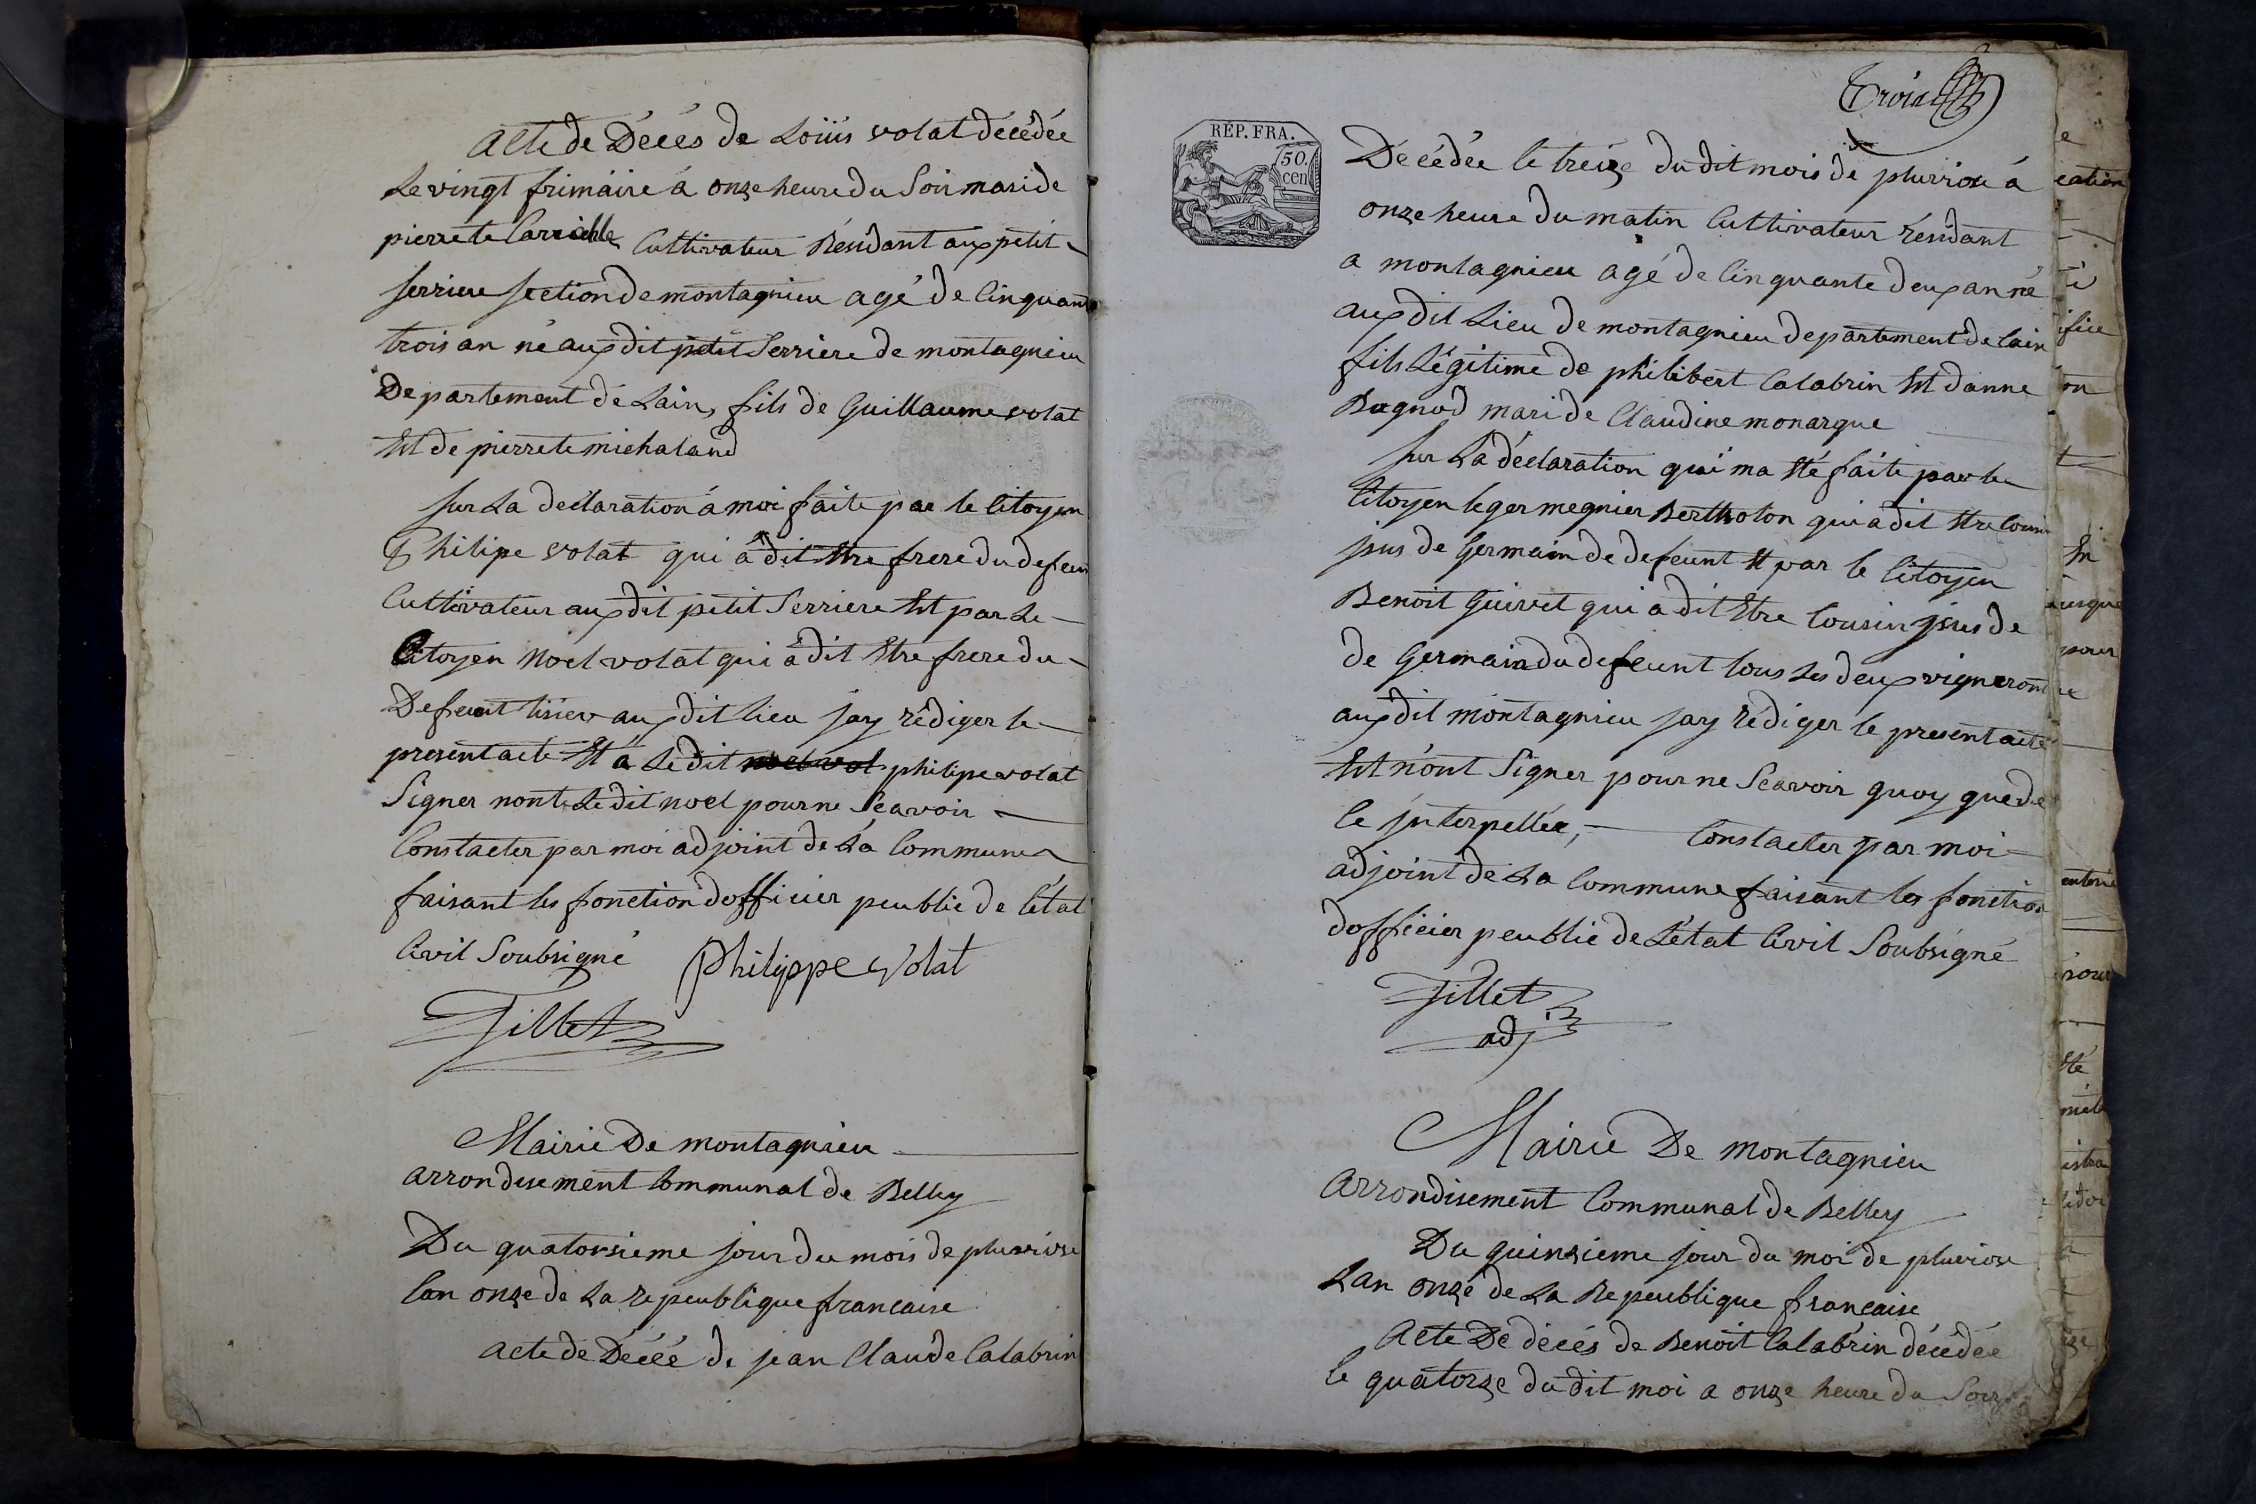 Acte de Décés de Loüis volat décédée
Le vingt frimaire á onze heure du Soir mari de
pierrete Cultivateur Résidant aux petit
serriere section de montagnieu agé de Cinquante
trois an né aux dit petit Serriere de montagnieu
Departement dé Lain, fils de Guillaume volat
Et de pierrete michaland
sur La déclaration á moi faite par le Citoyen
Philipe volat qui á dit Etre frere du defeun
Cultivateur aux dit petit Serriere Et par Le
Citoyen Noel volat qui á dit Etre frere du
Defeunt tisier aux dit lieu jay rédiger le
present acte Et á Le dit noel vol philipe volat
Signer nont Le dit noel pour ne Scavoir
Constacter par moi adjoint de La Commune
faisant les fonction dofficier peublic de létat
Civil Soubsigné Philippe Volat
Tillet
Mairie De montagnieu
arrondisement Communal de Belley
Du quatorsieme jour du mois de pluviose
lan onze de La repeublique francaise
acte de Décée de jean Claude Calabrin
Trois
RÉP. FRA.
50.
cen
Décédée le treize du dit mois de pluviose á
onze heure du matin Cultivateur résidant
a montagnieu agé de Cinquante deux an né
aux dit Lieu de montagnieu departement de lain
fils Légitime de philibert Calabrin Et danne
Bugnod mari de Claudine monarque
sur La déclaration qui ma Eté faite par le
Citoyen leger megnier Bertholon qui a dit Etre Cousin
jsus de Germain de defeunt Et par le Citoyen
Benoit Guivet qui a dit Etre Cousin jsus de
de Germain du defeunt tous Les deux vigneron
aux dit montagnieu jay rédiger le present acte
Et n'ont Signer pour ne Scavoir quoy que de
le jnterpellée, Constacter par moi
adjoint de La Commune faisant les fonction
dofficier peublic de Létat Civil Soubsigné
Tillet
adj
Mairie De montagnieu
Arrondisement Communal de Belley
Du quinsieme jour du moi de pluviose
Lan onzé de La Repeublique francaise
Acte De décés de Benoit Calabrin décédée
le quatorze du dit moi a onze heure du Soir